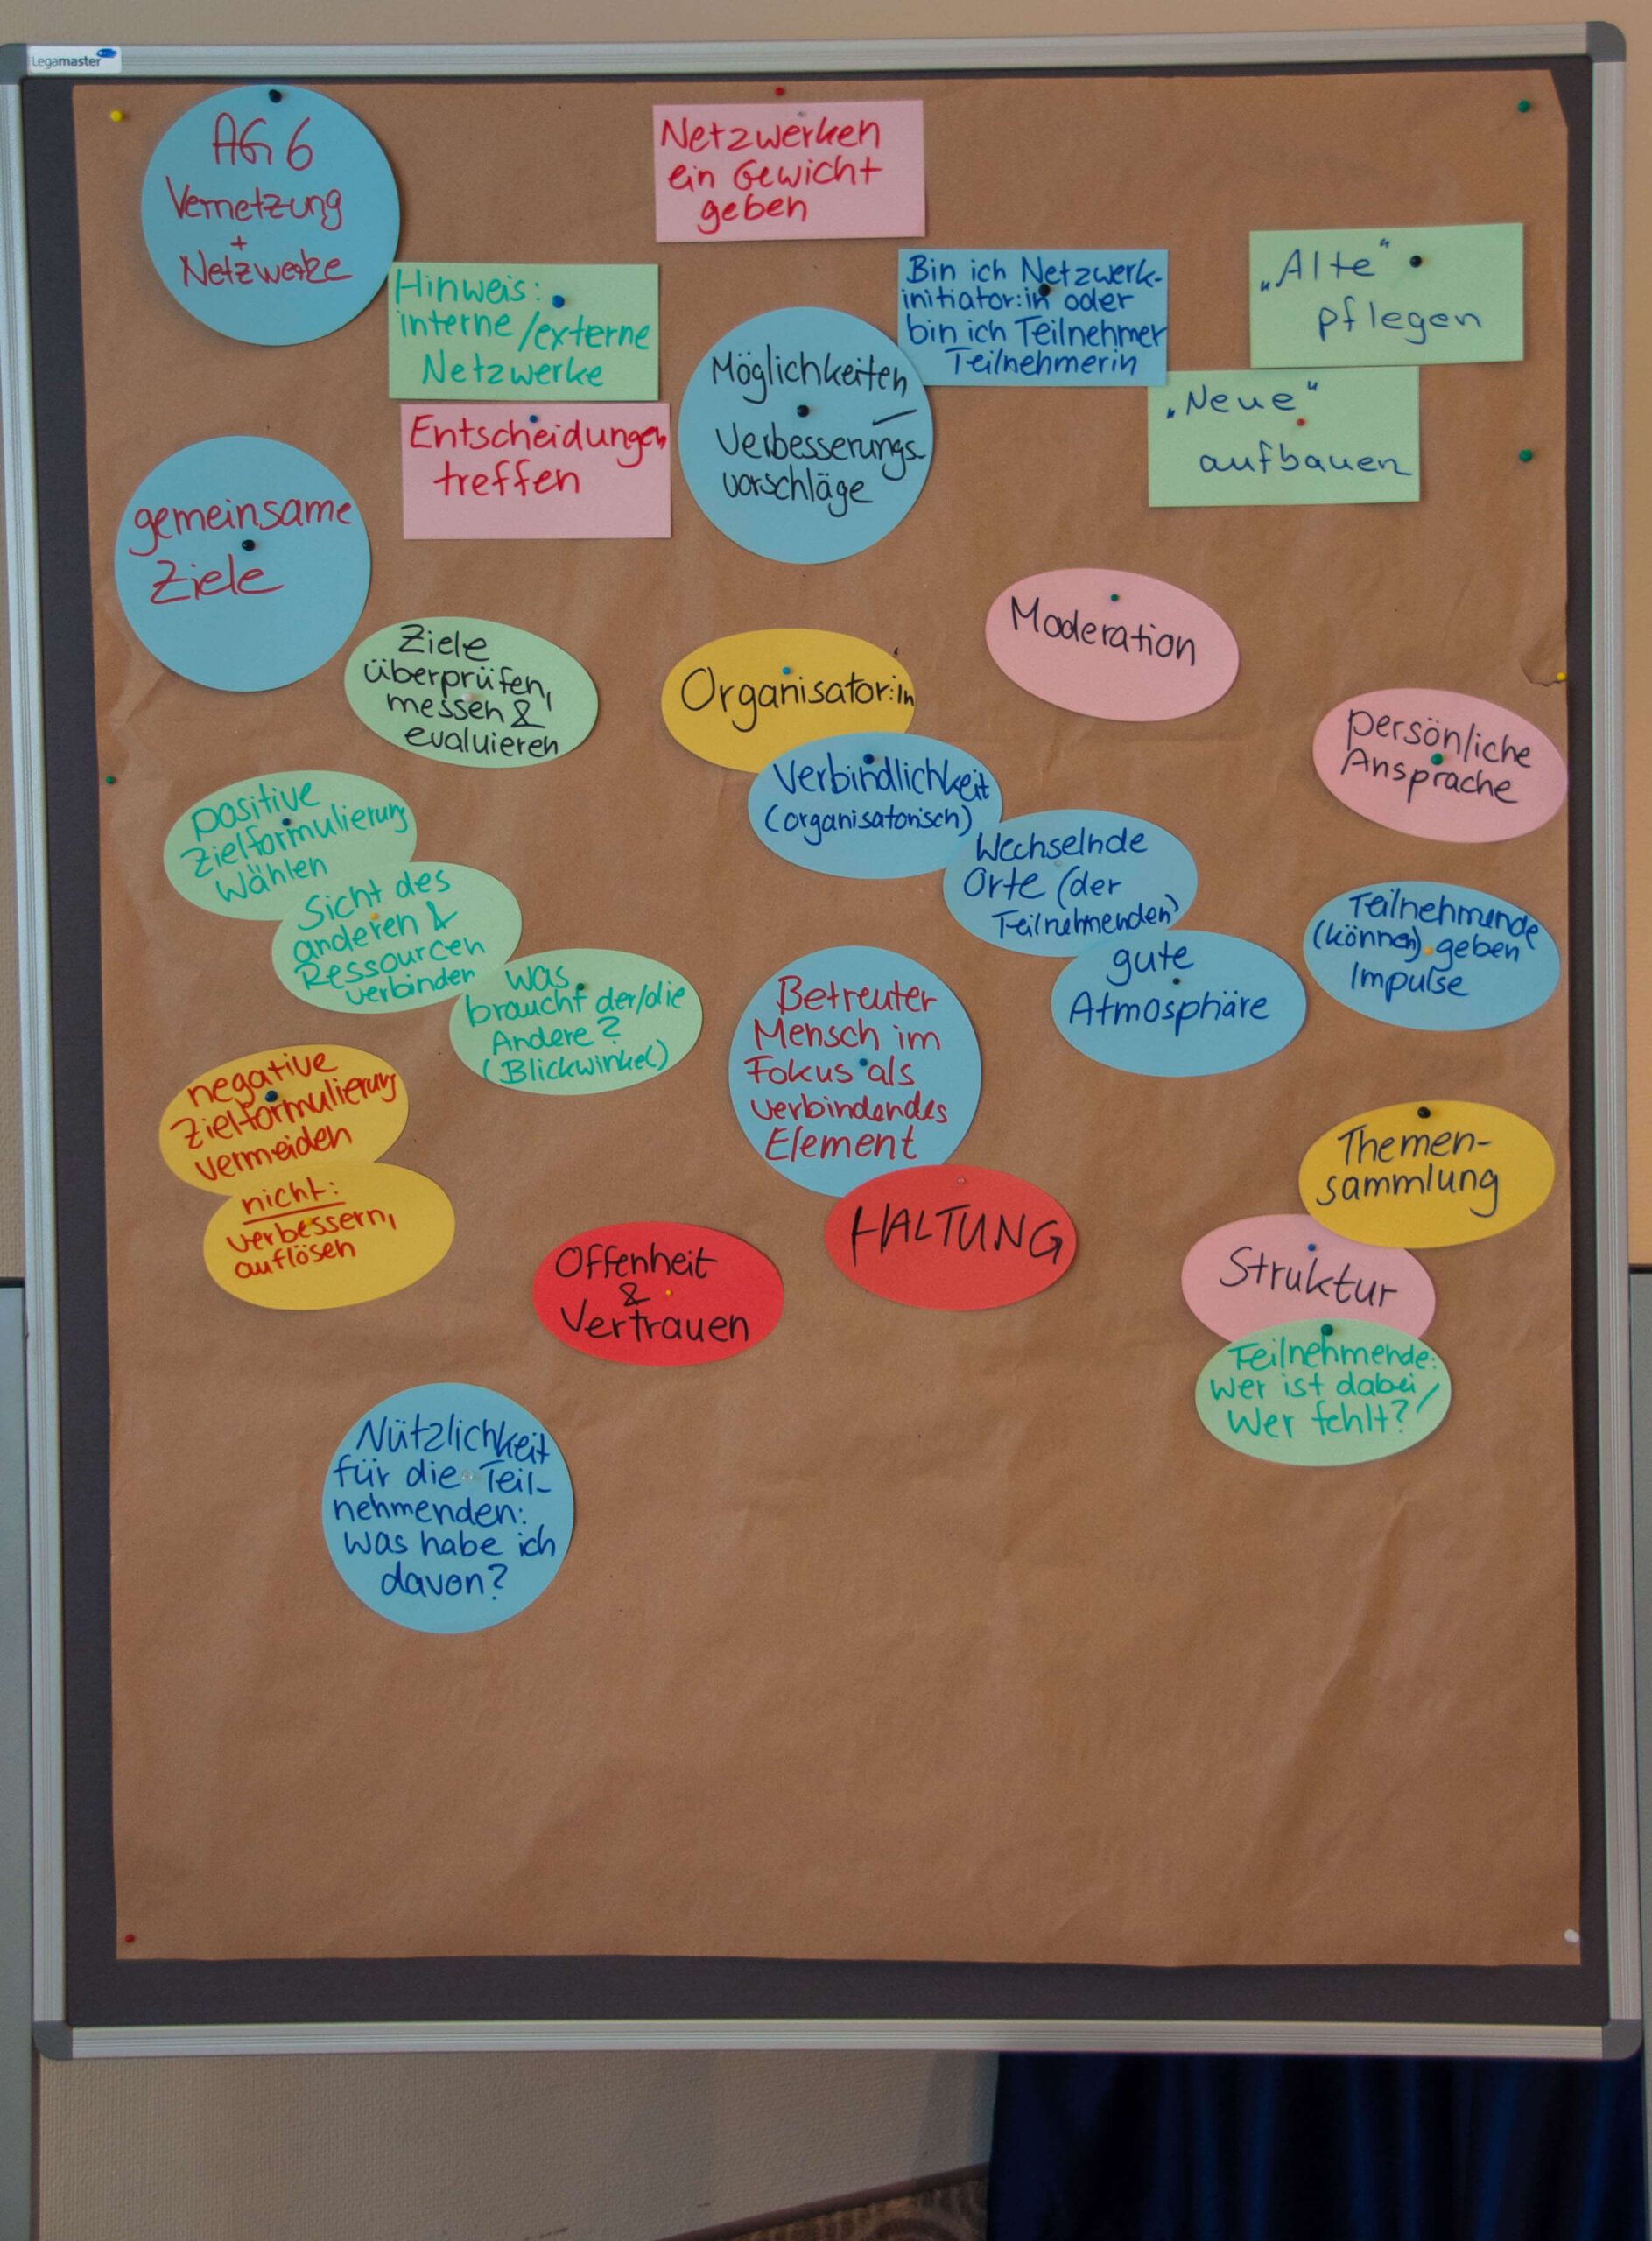 Legamaster
AG 6
Vernetzung
+
Netzwerke
Netzwerken
ein Gewicht
geben
Hinweis:
interne/externe
Netzwerke
Entscheidungen
treffen
Möglichkeiten
Verbesserungs-
vorschläge
Bin ich Netzwerk-
initiator:in oder
bin ich Teilnehmer
Teilnehmerin
„Alte"
pflegen
„Neue"
aufbauen
gemeinsame
Ziele
Ziele
überprüfen,
messen &
evaluieren
Organisator:in
Moderation
Verbindlichkeit
(organisatorisch)
persönliche
Ansprache
positive
Zielformulierung
wählen
Sicht des
anderen &
Ressourcen
verbinden
was
braucht der/die
Andere?
(Blickwinkel)
Wechselnde
Orte (der
Teilnehmenden)
gute
Atmosphäre
Teilnehmende
(können) geben
Impulse
Betreuter
Mensch im
Fokus als
verbindendes
Element
negative
Zielformulierung
vermeiden
nicht:
verbessern,
auflösen
Offenheit
&
Vertrauen
HALTUNG
Themen-
sammlung
Struktur
Teilnehmende:
Wer ist dabei/
Wer fehlt?
Nützlichkeit
für die Teil-
nehmenden:
Was habe ich
davon?